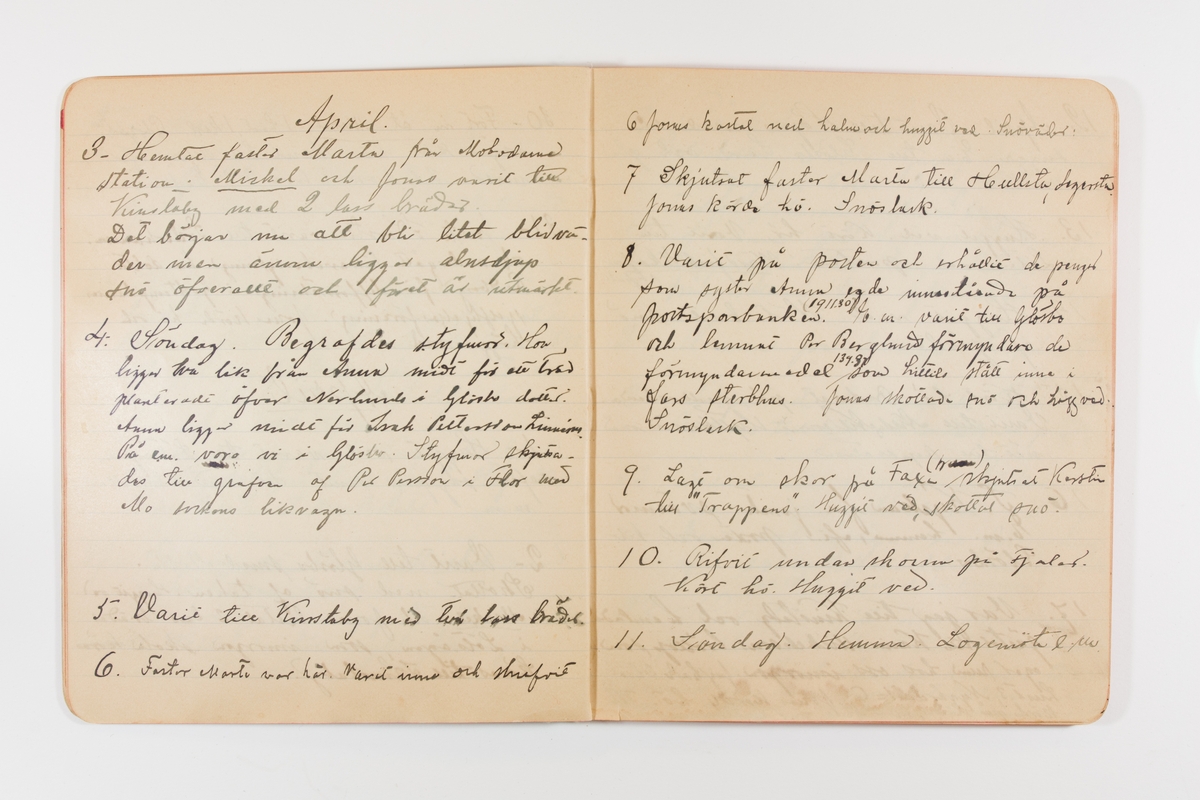 April.
3- Hemtat faster Marta från Mo
station. Mickel och Jonas varit till
Kinstaby med 2 lass bräder.
Det börjar nu att bli litet blidvä-
der men ännu ligger alnsdjup
snö öfverallt och föret är utmärkt.
4. Söndag. Begrafdes styfmor. Hon
ligger två lik från Anna midt för ett träd
planteradt öfver Norlunds i Glösbo dotter.
Anna ligger midt för Isak Pettersson
På em. voro vi i Glösbo. Styfmor skjutsa-
des till grafven af Per Persson i Flor med
Mo sockens likvagn.
5. Varit till Kinstaby med två lass bräder.
6. Faster Marta var här. Varit inne och skrifvit
6 Jonas kastat ned halm och huggit ved. Snöväder.
7 Skjutsat faster Marta till Hällsta, Segersta
Jonas körde hö. Snöslask.
8. Varit på posten och erhållit de penger
som syster Anna egde innestående på
postsparbanken. e. m. varit till Glösbo
och lemnat Per Berglund förmyndare de
förmyndaremedel som hittils stått inne i
Lars sterbhus. Jonas skottade snö och högg ved.
Snöslask.
9. Lagt om skor på Faxe skjutsat Kerstin
till "Trappens". Huggit ved, skottat snö.
10. Rifvit undan skorna på Fjalar.
Kört hö. Huggit ved.
11. Söndag. Hemma. Logemöte e. m.